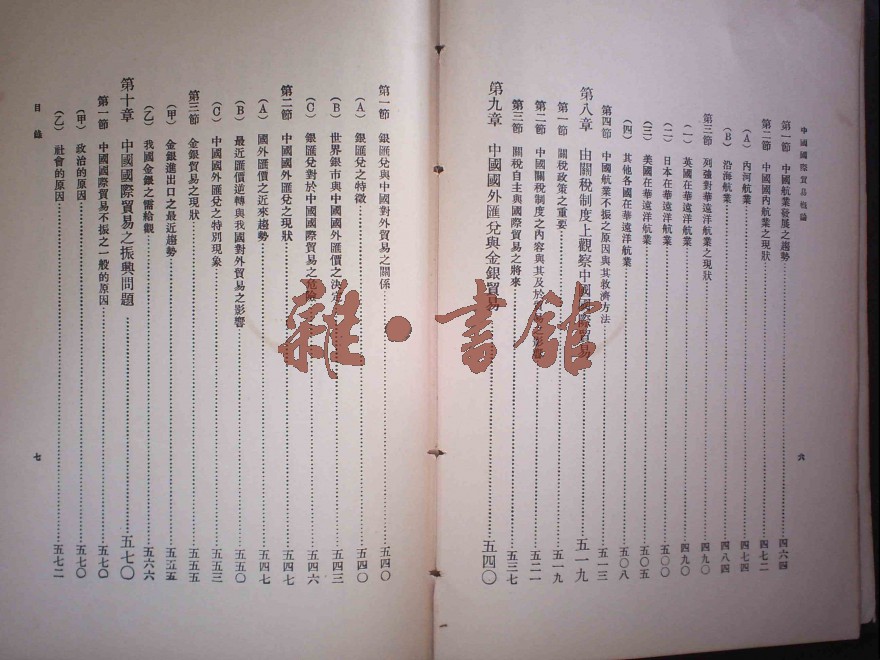 中國國際貿易概論
第一節 中國航業發展之趨勢……四六四
第二節 中國國內航業之現狀……四七二
(A) 內河航業……四七四
(B) 沿海航業……四八四
第三節 列強對華遠洋航業之現狀……四九〇
(一) 英國在華遠洋航業……四九〇
(二) 日本在華遠洋航業……五〇〇
(三) 美國在華遠洋航業……五〇五
(四) 其他各國在華遠洋航業……五〇八
第四節 中國航業不振之原因與其救濟方法……五一三
第八章 由關稅制度上觀察中國國際貿易……五一九
第一節 關稅政策之重要……五一九
第二節 中國關稅制度之內容與其及於貿易之影響……五二一
第三節 關稅自主與國際貿易之將來……五三七
第九章 中國國外匯兌與金銀貿易……五四〇
六
第一節 銀匯兌與中國對外貿易之關係……五四〇
(A) 銀匯兌之特徵……五四〇
(B) 世界銀市與中國國外匯價之決定……五四三
(C) 銀匯兌對於中國國際貿易之危險……五四六
第二節 中國國外匯兌之現狀……五四七
(A) 國外匯價之近來趨勢……五四七
(B) 最近匯價逆轉與我國對外貿易之影響……五五〇
(C) 中國國外匯兌之特別現象……五五三
第三節 金銀貿易之現狀……五五五
(甲) 金銀進出口之最近趨勢……五五五
(乙) 我國金銀之需給觀……五六六
第十章 中國國際貿易之振興問題……五七〇
第一節 中國國際貿易不振之一般的原因……五七〇
(甲) 政治的原因……五七〇
(乙) 社會的原因……五七二
目錄
七
雜·書館